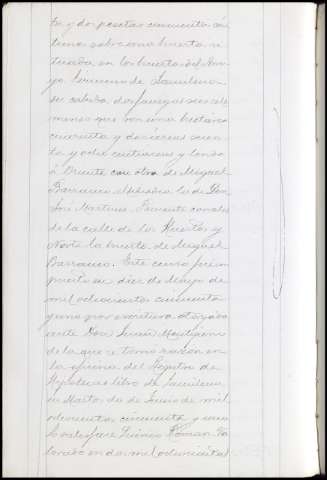 ta y dos pesetas cincuenta cen
timos sobre una huerta si
tuada en los huertos del
termino de
su cabida dos fanegas seis cele
mines que son una hectarea
cincuenta y
ta y ocho centiareas y linda
á Oriente con otra de Miguel
Barranco al Mediodia la de Don
José Martinez Poniente
de la calle de los Huertos y
Norte la huerta de Miguel
Barranco. Este censo fué im
puesto en diez de Mayo de
mil ochocientos cincuenta
y uno por escritura otorgada
ante Don
de la que se tomó razon en
la oficina del Registro de
Hipotecas libro de
en de Junio de mil
ochocientos cincuenta y uno
Roman. Va
lorado en dos mil ochocientas